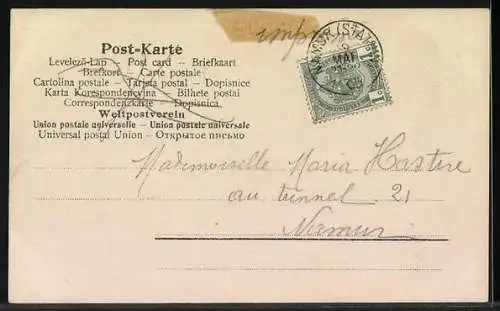 Post-Karte
Levelező-Lap — Post card — Briefkaart
Brefkort — Carte postale
Cartolina postale — Tarjeta postal — Dopisnice
Karta Korespondencyjna — Bilhete postal
Correspondenzkarte — Dopisnica.
Weltpostverein
Union postale universelle — Union postale universale
Universal postal Union — Открытое письмо
NAMUR (STA
MAI
1
1
Mademoiselle Maria Hastire
au tunnel 21
Namur